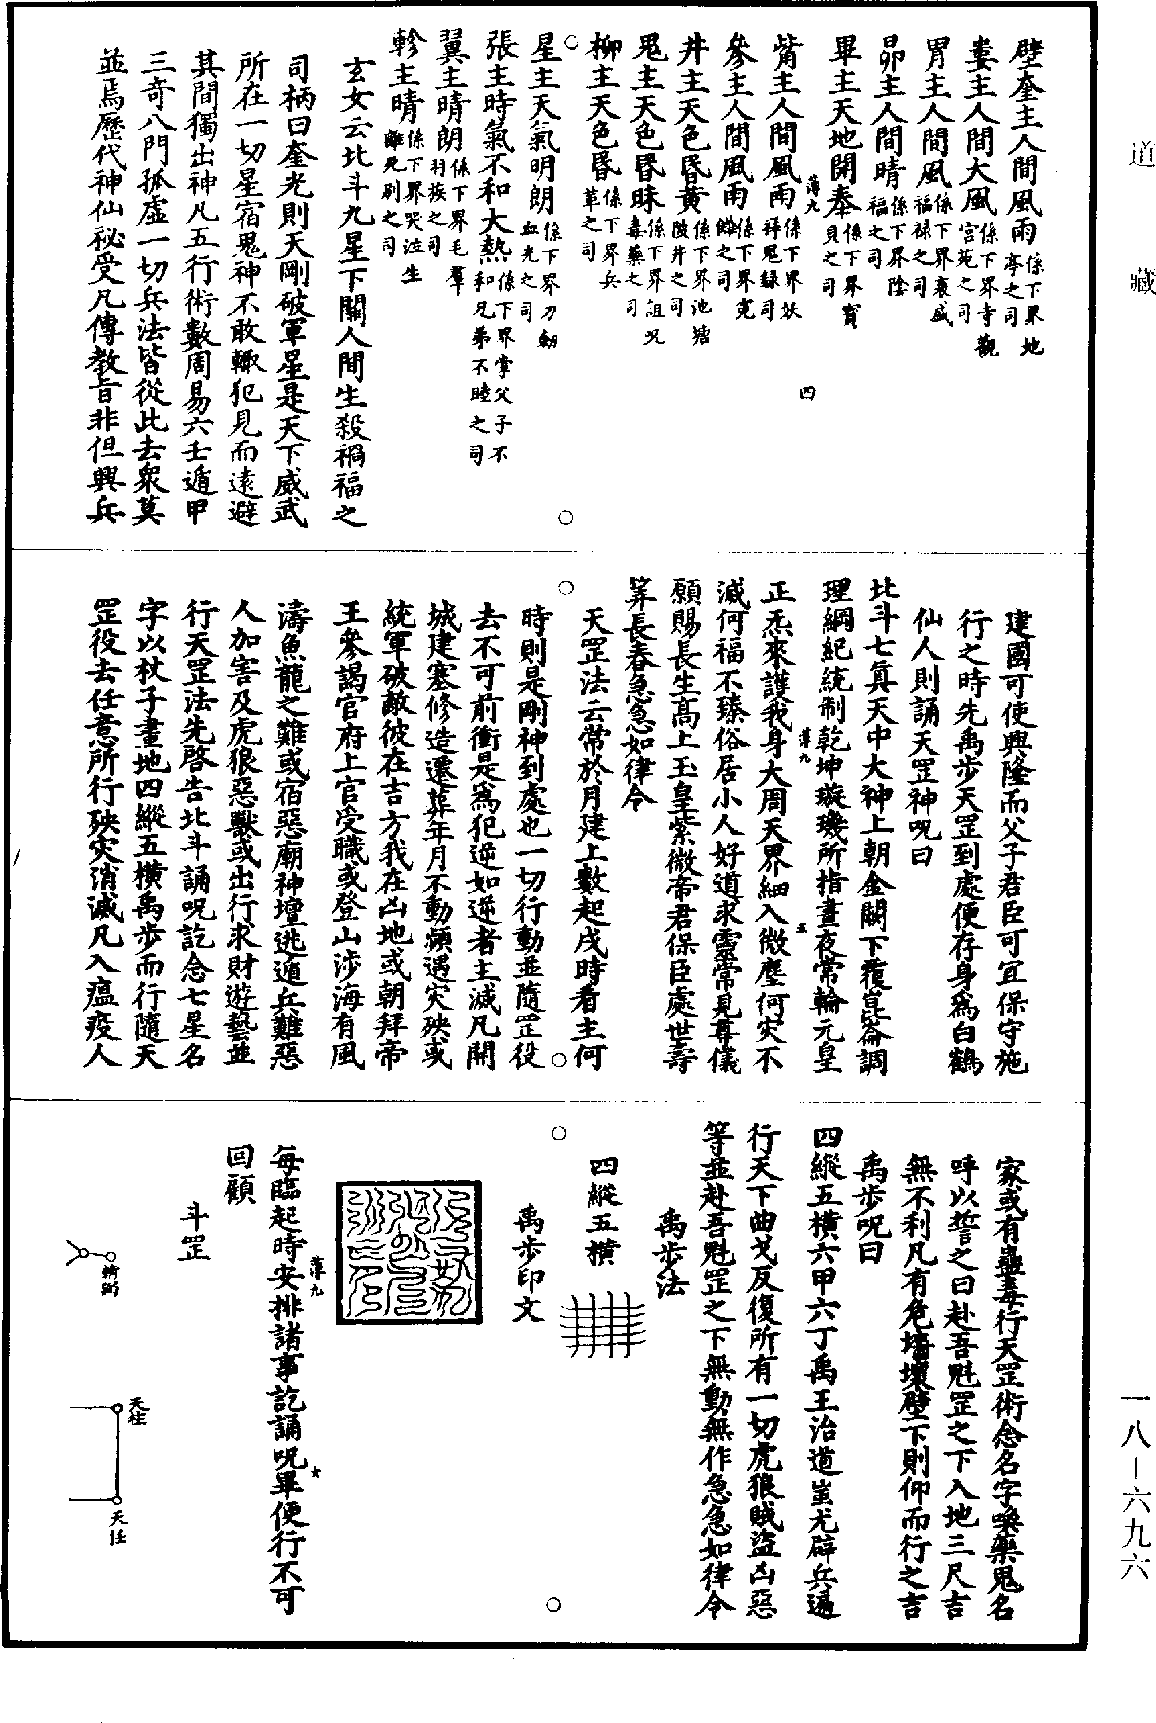 道藏
壁奎主人間風雨係下界地亭之司
婁主人間大風係下界寺觀宫苑之司
胃主人間風係下界衰盛福禄之司
昴主人間晴係下界陰福之司
畢主天地開奉係下界寳貝之司
薄九
四
觜主人間風雨係下界妖拜鬼録司
參主人間風雨係下界寃讎之司
井主天色昏黄係下界池塘陂井之司
鬼主天色昏昧係下界詛呪毒藥之司
柳主天色昏係下界兵革之司
星主天氣明朗係下界刀劒血光之司
張主時氣不和大熱係下界掌父子不和兄弟不睦之司
翼主晴朗係下界毛羣羽族之司
軫主晴係下界哭泣生離死別之司
玄女云北斗九星下關人間生殺禍福之
司柄曰奎光則天剛破軍星是天下威武
所在一切星宿鬼神不敢輙犯見而遠避
其間獨出神凡五行術數周易六壬遁甲
三竒八門孤虛一切兵法皆從此去衆莫
並焉歷代神仙祕受凡傳教旨非但興兵
建國可使興隆而父子君臣可宜保守施
行之時先禹步天罡到處便存身為白鶴
仙人則誦天罡神呪曰
北斗七真天中大神上朝金闕下覆崑崙調
理綱紀統制乾坤璇璣所指晝夜常輪元皇
薄九
五
正炁來護我身大周天界細入微塵何灾不
滅何福不臻俗居小人好道求靈常見尊儀
願賜長生高上玉皇紫微帝君保臣處世壽
筭長春急急如律令
天罡法云常於月建上數起戌時看主何
時則是剛神到處也一切行動並隨罡役
去不可前衝是為犯逆如逆者主滅凡開
城建塞修造遷葬年月不動頻遇灾殃或
統軍破敵彼在吉方我在凶地或朝拜帝
王參謁官府上官受職或登山涉海有風
濤魚龍之難或宿惡廟神壇逃遁兵難惡
人加害及虎狼惡獸或出行求財遊藝並
行天罡法先啓告北斗誦呪訖念七星名
字以杖子畫地四縱五横禹步而行隨天
罡役去任意所行殃灾消滅凡入瘟疫人
家或有蠱毒行天罡術念名字喚藥鬼名
呼以誓之曰赴吾魁罡之下入地三尺吉
無不利凡有危墻壞壁下則仰而行之吉
禹步呪曰
四縱五横六甲六丁禹王治道蚩尤辟兵遍
行天下曲戈反復所有一切虎狼賊盜凶惡
等並赴吾魁罡之下無動無作急急如律令
禹步法
四縱五横
禹步印文
每臨起時安排諸事訖誦呪畢便行不可
薄九
六
回顧
斗罡
輔弼
天柱
天任
一八—六九六